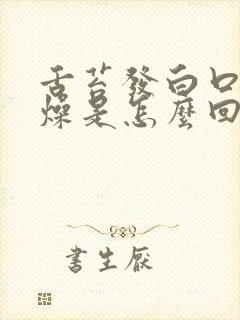 舌苔發白口
燥是怎麼回
書生厭